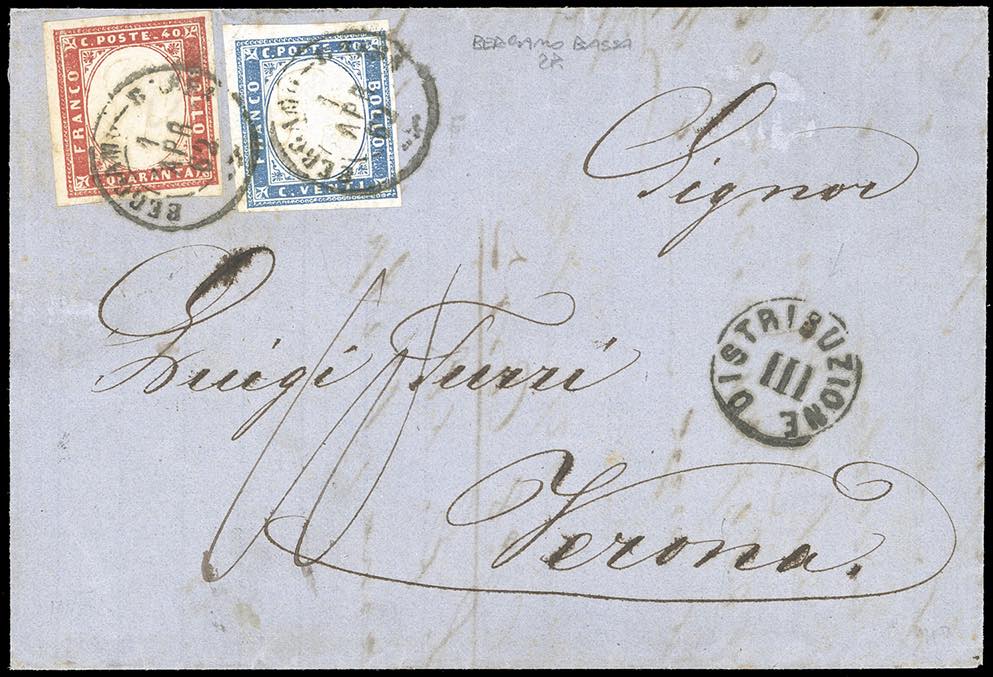 C. POSTE. 40
FRANCO
BOLLO
QUARANTA
C. POSTE. 20
FRANCO
BOLLO
C. VENTI
BERGAMO
1
APR
62
1
APR
BERGAMO BASSA
Signor
Luigi Turri
Verona.
DISTRIBUZIONE
III